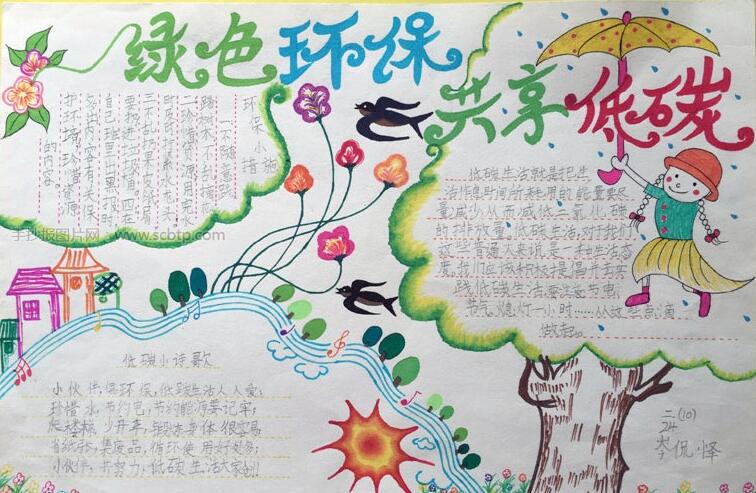 绿色环保
共享低碳
环保小措施
一不随意践
踏树木,不乱摘花
二珍惜资源,用完水
三不乱扔果皮纸屑
要扔进垃圾箱,四在
自己班里出黑报时
多出内容有关保
护环境,珍惜资源
的内容
手抄报图片网 www.scbtp.com
低碳生活就是把生
活作息时间所耗用的能量要尽
量减少,从而减低二氧化碳
的排放量,低碳生活,对于我们
这些普通人来说是一种生活态
度,我们应该积极提倡并去实
践低碳生活,要注意节电,
节气,熄灯一小时……从这些点滴
做起。
低碳小诗歌
小伙伴,保环保,低碳生活人人爱;
珍惜水,节约电,节约能源要记牢;
爬楼梯,少开车,锻炼身体很容易
省纸张,集废品,循环使用好处多;
小伙伴,齐努力,低碳生活大家创
二(10)
24